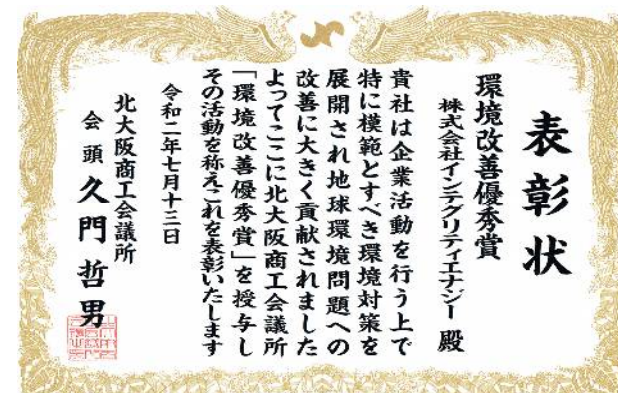 表彰状
環境改善優秀賞
株式会社インテグリティエナジー 殿
貴社は企業活動を行う上で
特に模範とすべき環境対策を
展開され地球環境問題への
改善に大きく貢献されました
よってここに北大阪商工会議所
「環境改善優秀賞」を授与し
その活動を称えこれを表彰いたします
令和二年七月十三日
北大阪商工会議所
会頭 久門哲男